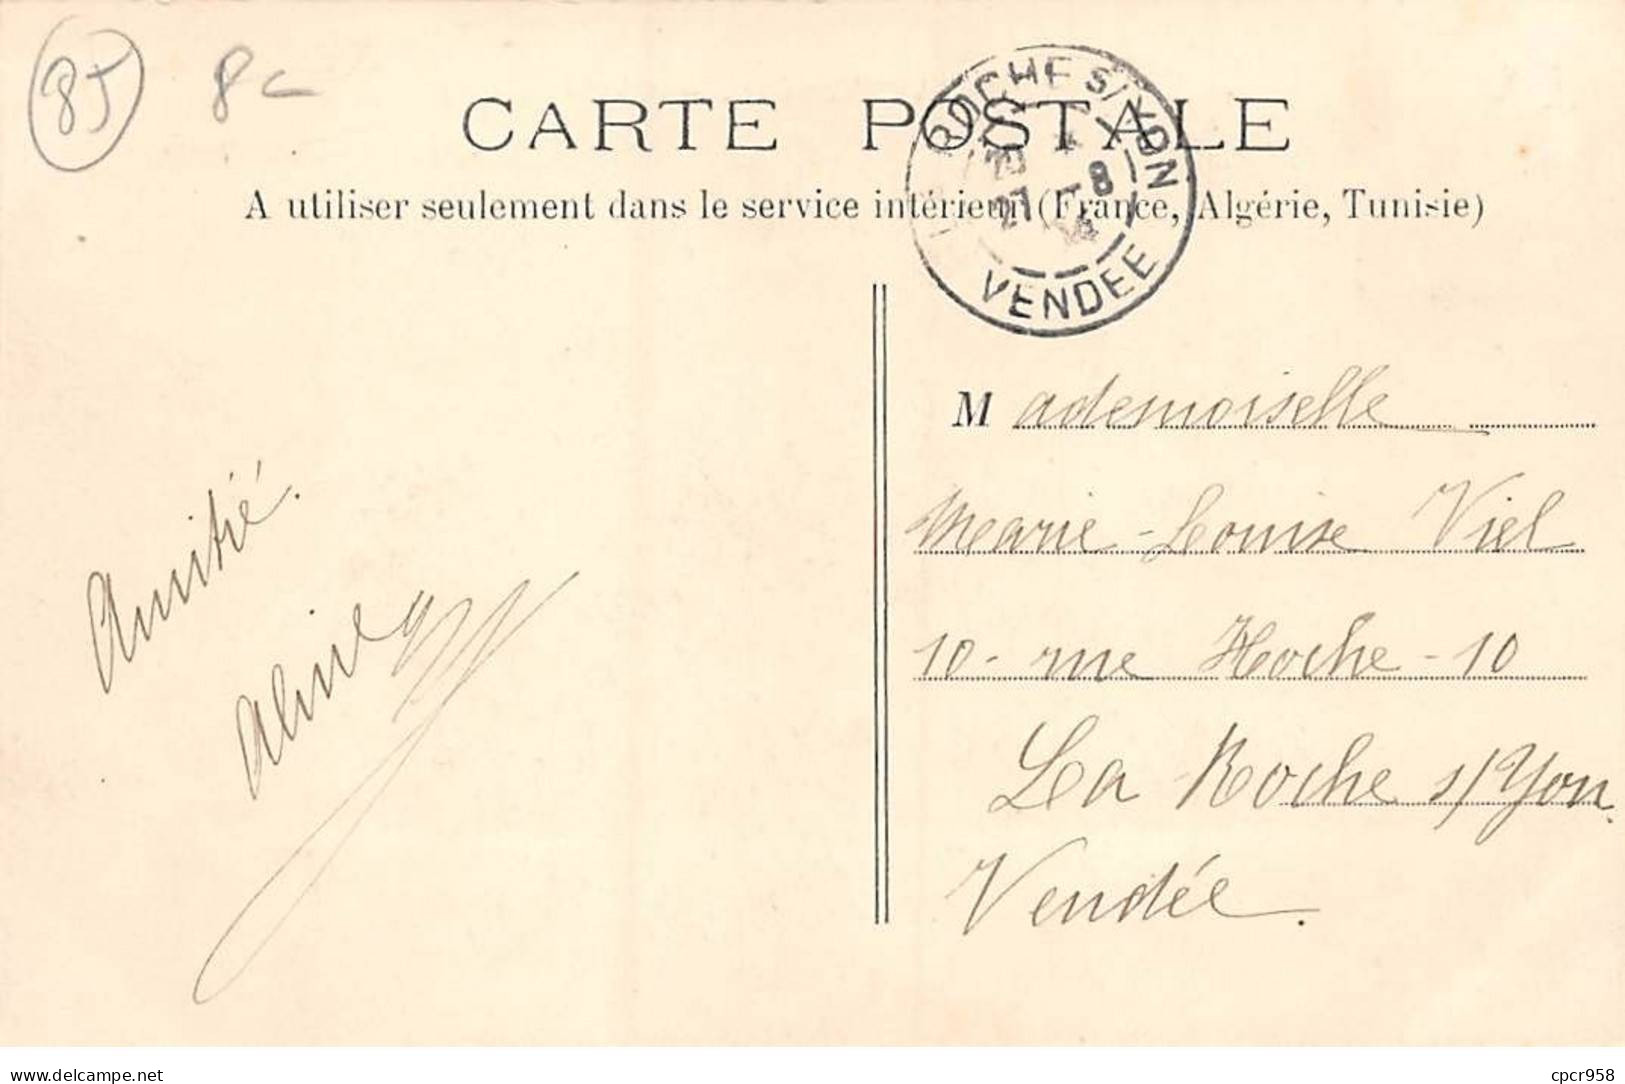 85 8
CARTE POSTALE
A utiliser seulement dans le service intérieur (France, Algérie, Tunisie)
ROCHE S/YON
27 - 8
VENDEE
Mademoiselle
Marie-Louise Viel
10 - rue Hoche - 10
La Roche s/Yon
Vendée.
Amitié.
Aline
www.delcampe.net
cpcr958